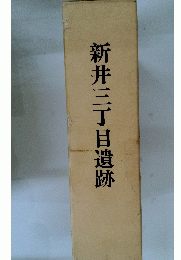 新井三丁目遺跡